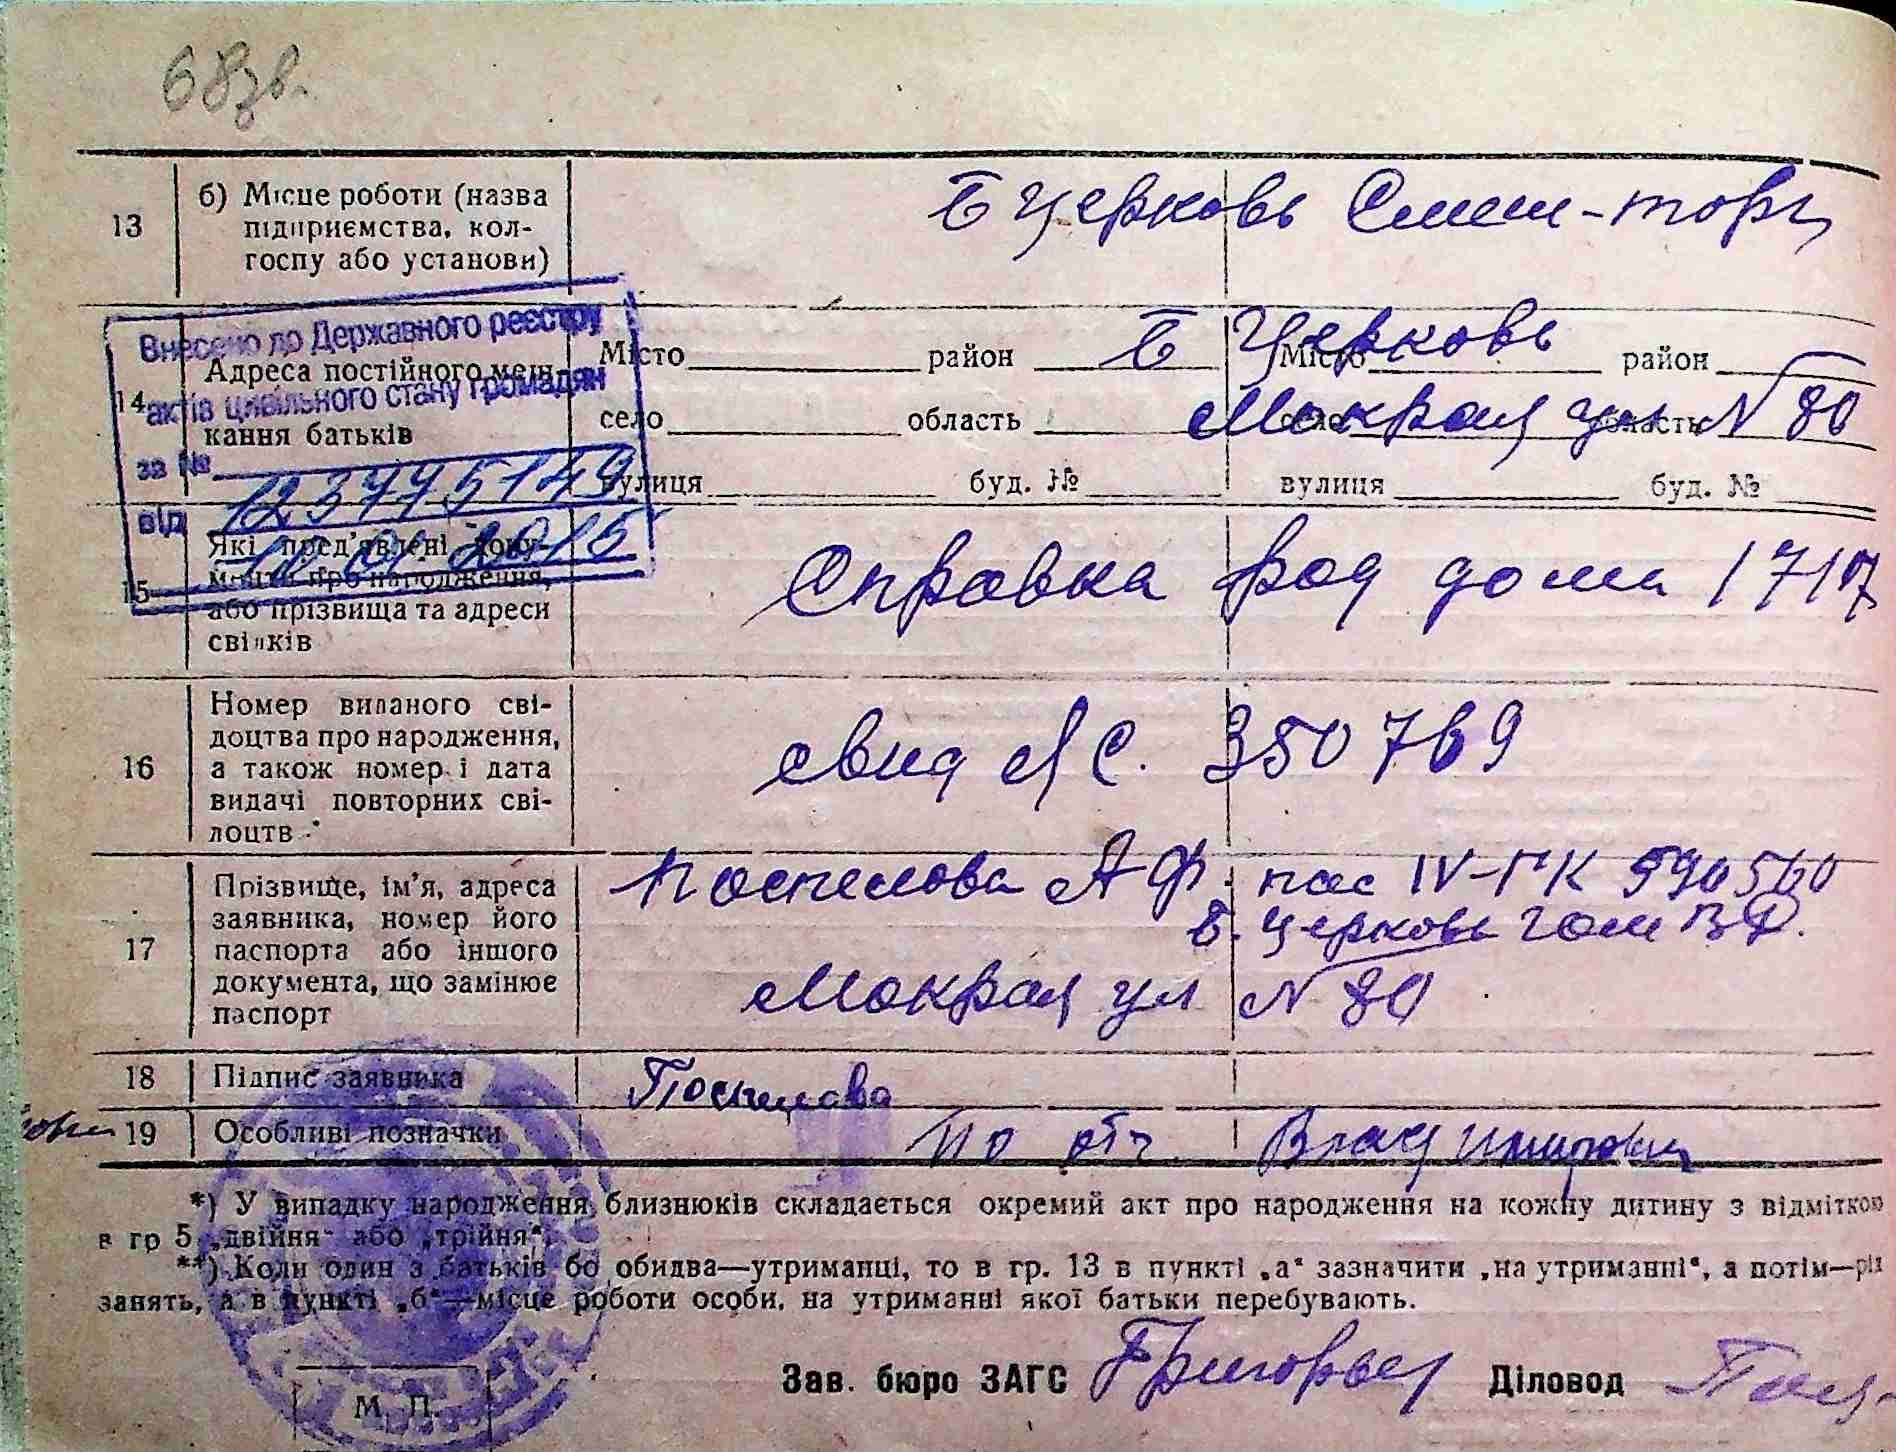 68зв.
13 б) Місце роботи (назва підприємства, колгоспу або установи)
Б Церковь Смеш-торг
Внесено до Державного реєстру
актів цивільного стану громадян
за № 123775149
від 10 01 2015
14 Адреса постійного мешкання батьків
Місто район Місто район
Б Церковь
село область село область
Мокрая ул N 80
вулиця буд. № вулиця буд. №
15 Які пред'явлені документи про народження, або прізвища та адреси свідків
Справка род дома 1717
16 Номер виданого свідоцтва про народження, а також номер і дата видачі повторних свідоцтв
свид ЯС. 350769
17 Прізвище, ім'я, адреса заявника, номер його паспорта або іншого документа, що замінює паспорт
Поспелова А Ф. пас IV-ГК 590560
Б. Церковь
Мокрая ул N 80
18 Підпис заявника
Поспелова
19 Особливі позначки
по отч. Владимировы
*) У випадку народження близнюків складається окремий акт про народження на кожну дитину з відміткою
в гр 5 „двійня“ або „трійня“.
**) Коли один з батьків бо обидва—утриманці, то в гр. 13 в пункті „а“ зазначити „на утриманні“, а потім—рід
занять, а в пункті „б“—місце роботи особи, на утриманні якої батьки перебувають.
Зав. бюро ЗАГС Григорьев Діловод
М. П.